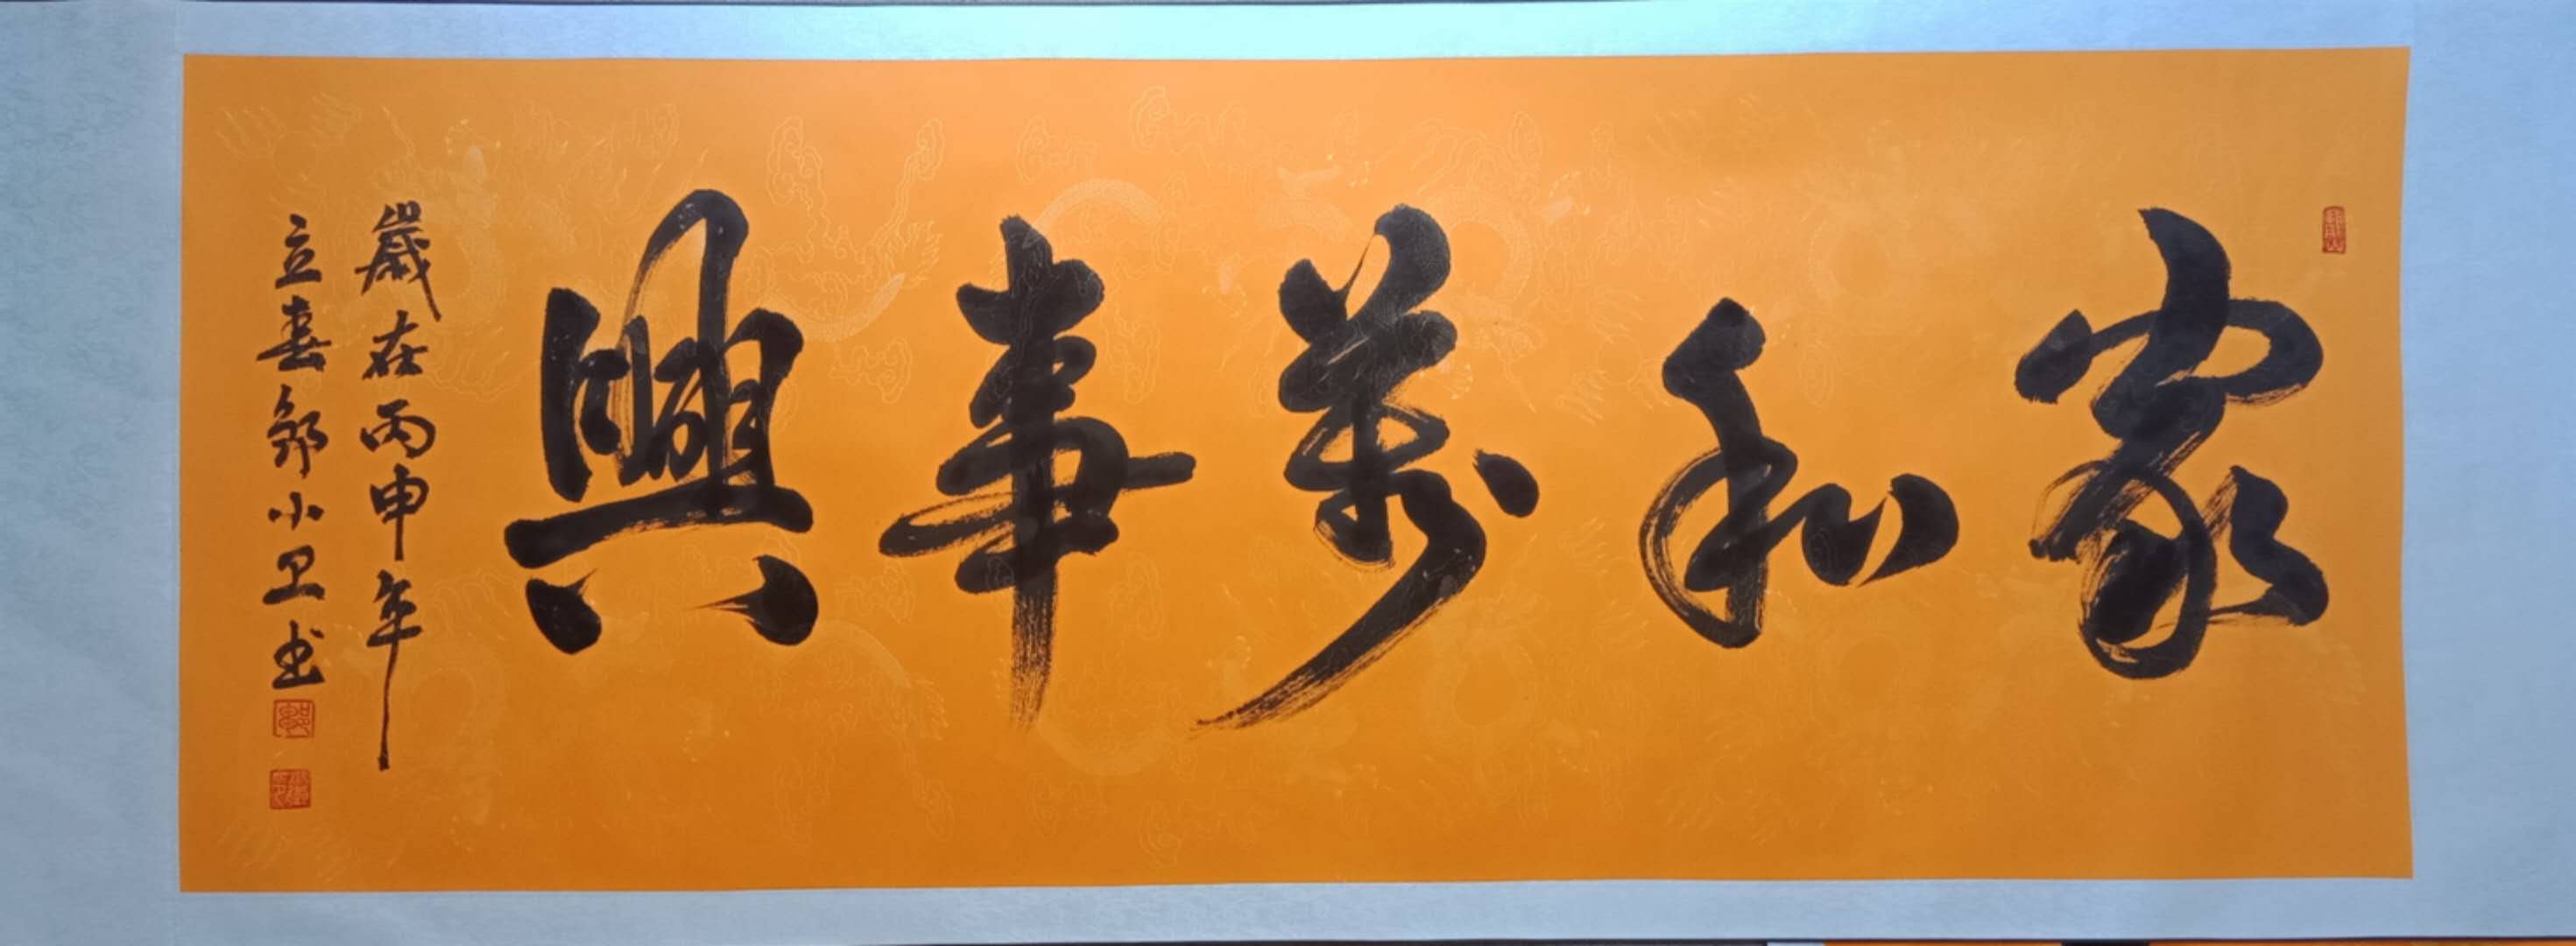 家和萬事興
歲在丙申年
立春邹小卫书